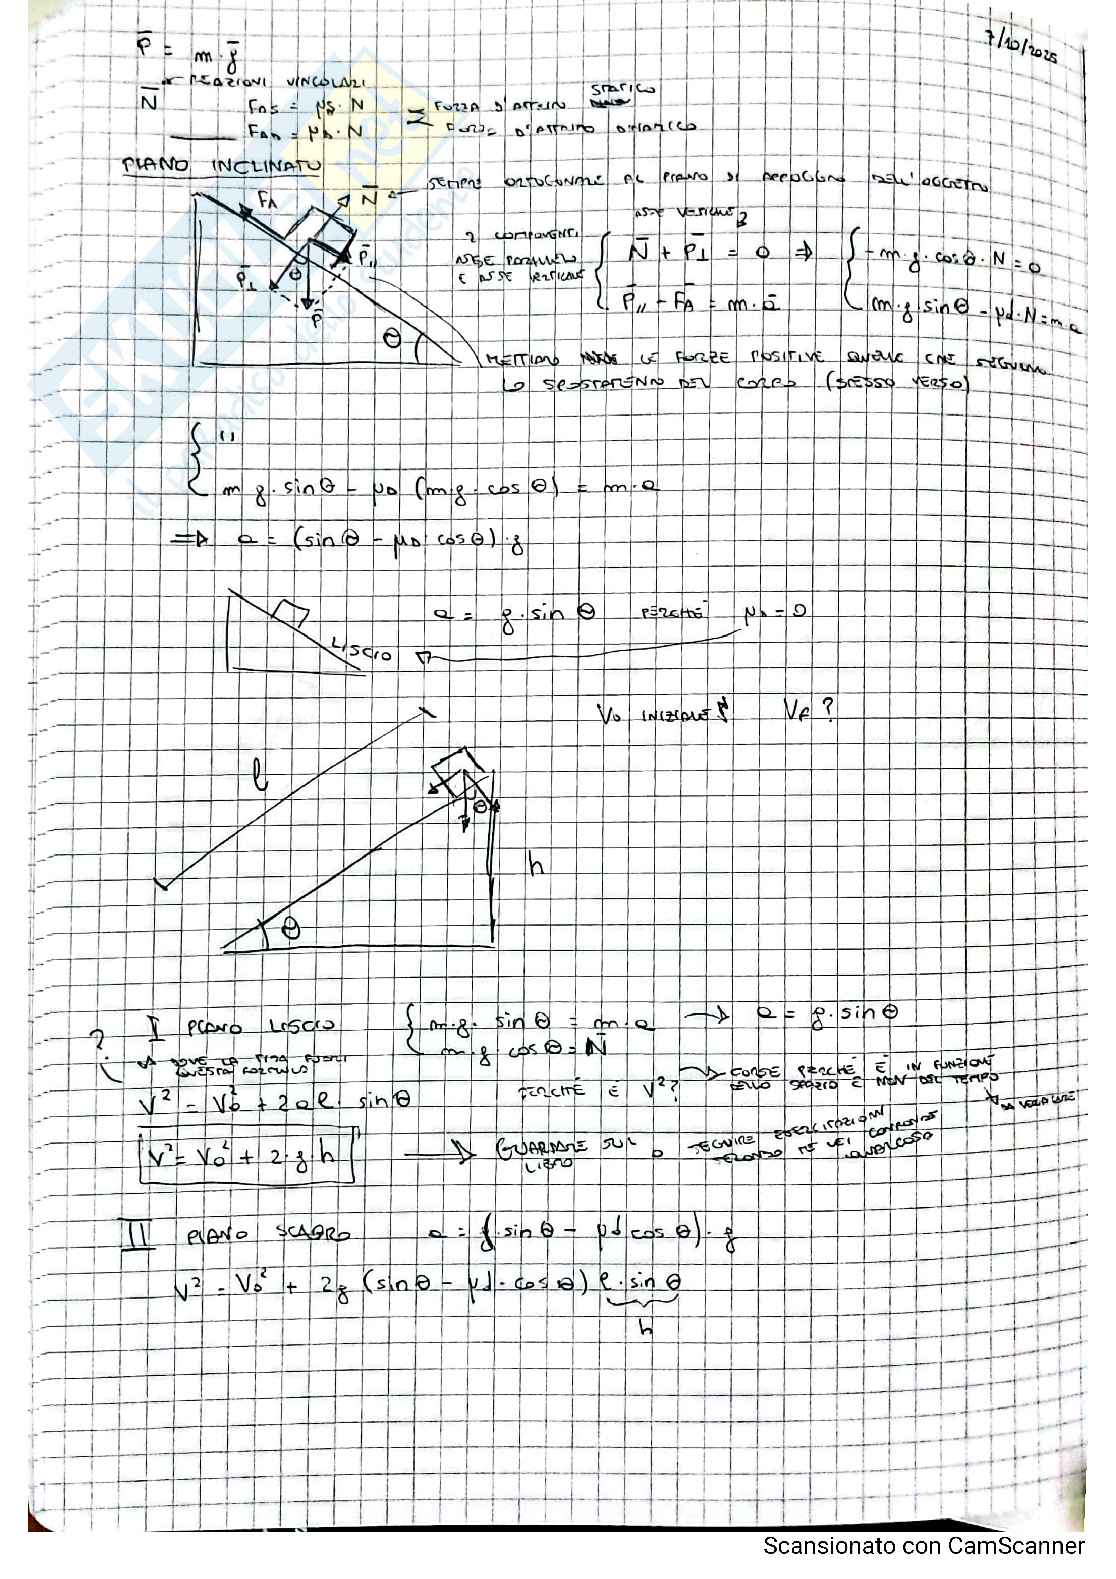 7/10/2025
P̄ = m · ḡ
N̄ ← REAZIONI VINCOLARI
FAS = μs · N = FORZA D'ATTRITO STATICO
FAD = μD · N = FORZA D'ATTRITO DINAMICO
PIANO INCLINATO
FA N̄ ← SEMPRE ORTOGONALE AL PIANO DI APPOGGIO DELL'OGGETTO
P̄⊥ θ P̄// P̄ θ
2 COMPONENTI
ASSE PARALLELO
E ASSE VERTICALE
ASSE VERTICALE
{ N̄ + P̄⊥ = 0 ⇒ { - m · g · cosθ · N = 0
P̄// - F̄A = m · ā m · g sinθ - μd · N = m a
METTIAMO LE FORZE POSITIVE QUELLE CHE SEGUONO
LO SPOSTAMENTO DEL CORPO (STESSO VERSO)
{ ''
m g · sinθ - μD (m · g · cosθ) = m · a
⇒ a = (sinθ - μD cosθ) · g
a = g · sinθ PERCHÉ μD = 0
LISCIO
V0 INIZIALE Vf ?
l
θ
h
θ
? I PIANO LISCIO { m · g · sinθ = m · a → a = g · sinθ
m · g · cosθ = N̄
DOVE LA TIRA FUORI
QUESTA FORMULA
V² = V0² + 2 a l · sinθ PERCHÉ È V²? → FORSE PERCHÉ È IN FUNZIONE
DELLO SPAZIO E NON DEL TEMPO
DA VERIFICARE
V² = V0² + 2 · g · h → GUARDARE SUL
LIBRO
O SEGUIRE ESERCITAZIONI
QUALCOSA
II PIANO SCABRO a = (sinθ - μd cosθ) · g
V² = V0² + 2g (sinθ - μd · cosθ) l · sinθ
h
Scansionato con CamScanner